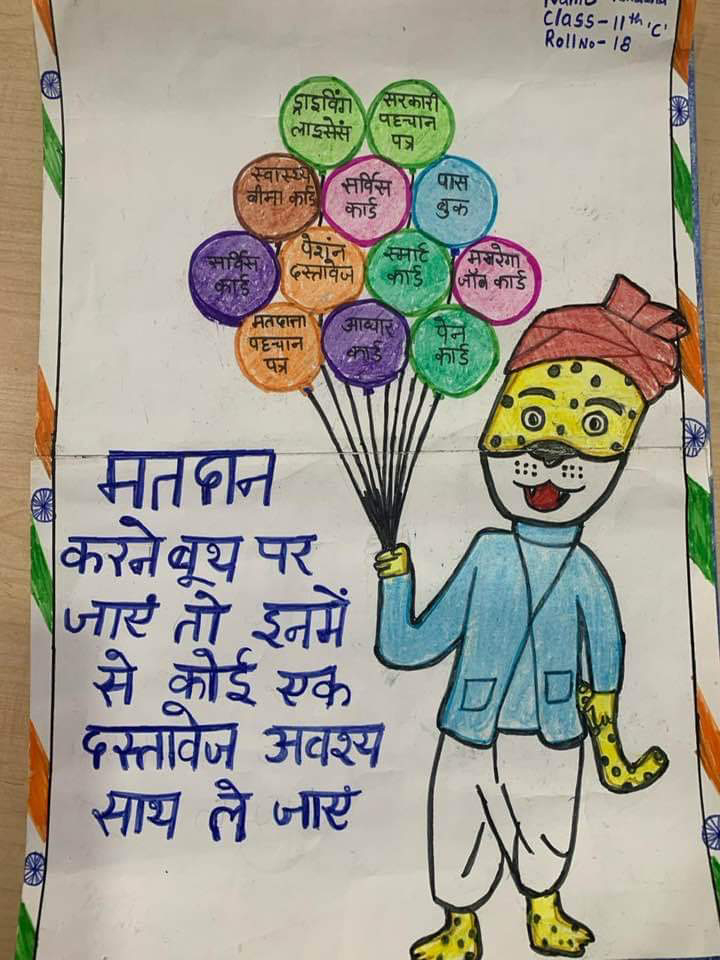 Class-11th 'C'
Roll No- 18
ड्राइविंग
लाइसेंस
सरकारी
पहचान
पत्र
स्वास्थ्य
बीमा कार्ड
सर्विस
कार्ड
पास
बुक
सर्विस
कार्ड
पेशंन
दस्तावेज
स्मार्ट
कार्ड
मनरेगा
जॉब कार्ड
मतदाता
पहचान
पत्र
आधार
कार्ड
पेन
कार्ड
मतदान
करने बूथ पर
जाएं तो इनमें
से कोई एक
दस्तावेज अवश्य
साथ ले जाएं